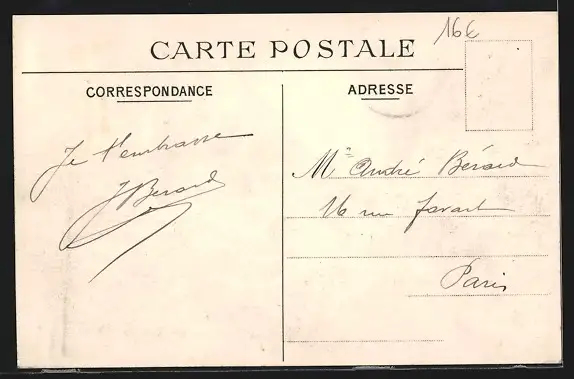 16€
CARTE POSTALE
CORRESPONDANCE
ADRESSE
Je t'embrasse
J Berard
Mme André Bérard
16 rue Favart
Paris